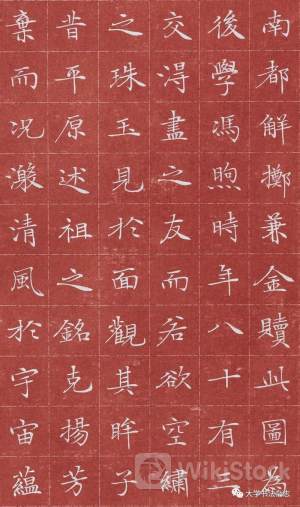 南都解擲兼金贖此圖為
後學馮煦時年八十有二
交淂盡之友而若欲空繡
之珠玉見於面觀其眸子
昔平原述祖之銘克揚芳
棄而况激清風於宇宙蘊
WikiStock